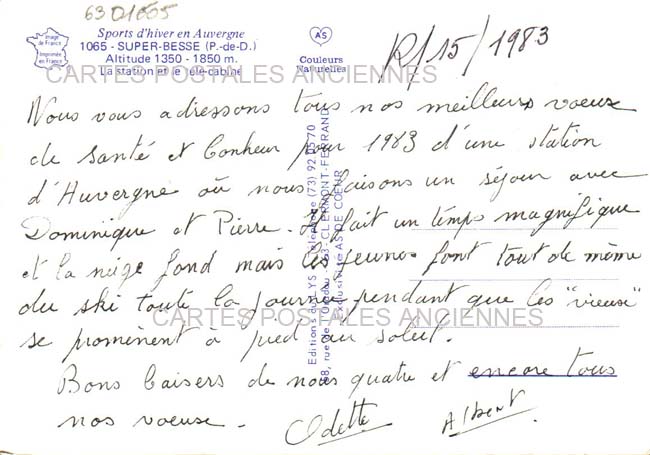 63 D1665
Image de France
Imprimée en France
Sports d'hiver en Auvergne
1065 - SUPER-BESSE (P.-de-D.)
Altitude 1350 - 1850 m.
La station et le télé-cabine
AS
Couleurs Naturelles
R/15/1983
CARTES POSTALES ANCIENNES
Nous vous adressons tous nos meilleurs voeux
de santé et bonheur pour 1983 d'une station
d'Auvergne où nous faisons un séjour avec
Dominique et Pierre. Il fait un temps magnifique
et la neige fond mais les jeunes font tout de même
du ski toute la journée pendant que les "vieux"
CARTES POSTALES ANCIENNES
se promènent à pied au soleil.
Bons baisers de nous quatre et encore tous
nos voeux.
Odette Albert
Editions du LYS - Téléphone (73) 92.05.70
63 - CLERMONT-FERRAND
Exclusivité AS DE COEUR